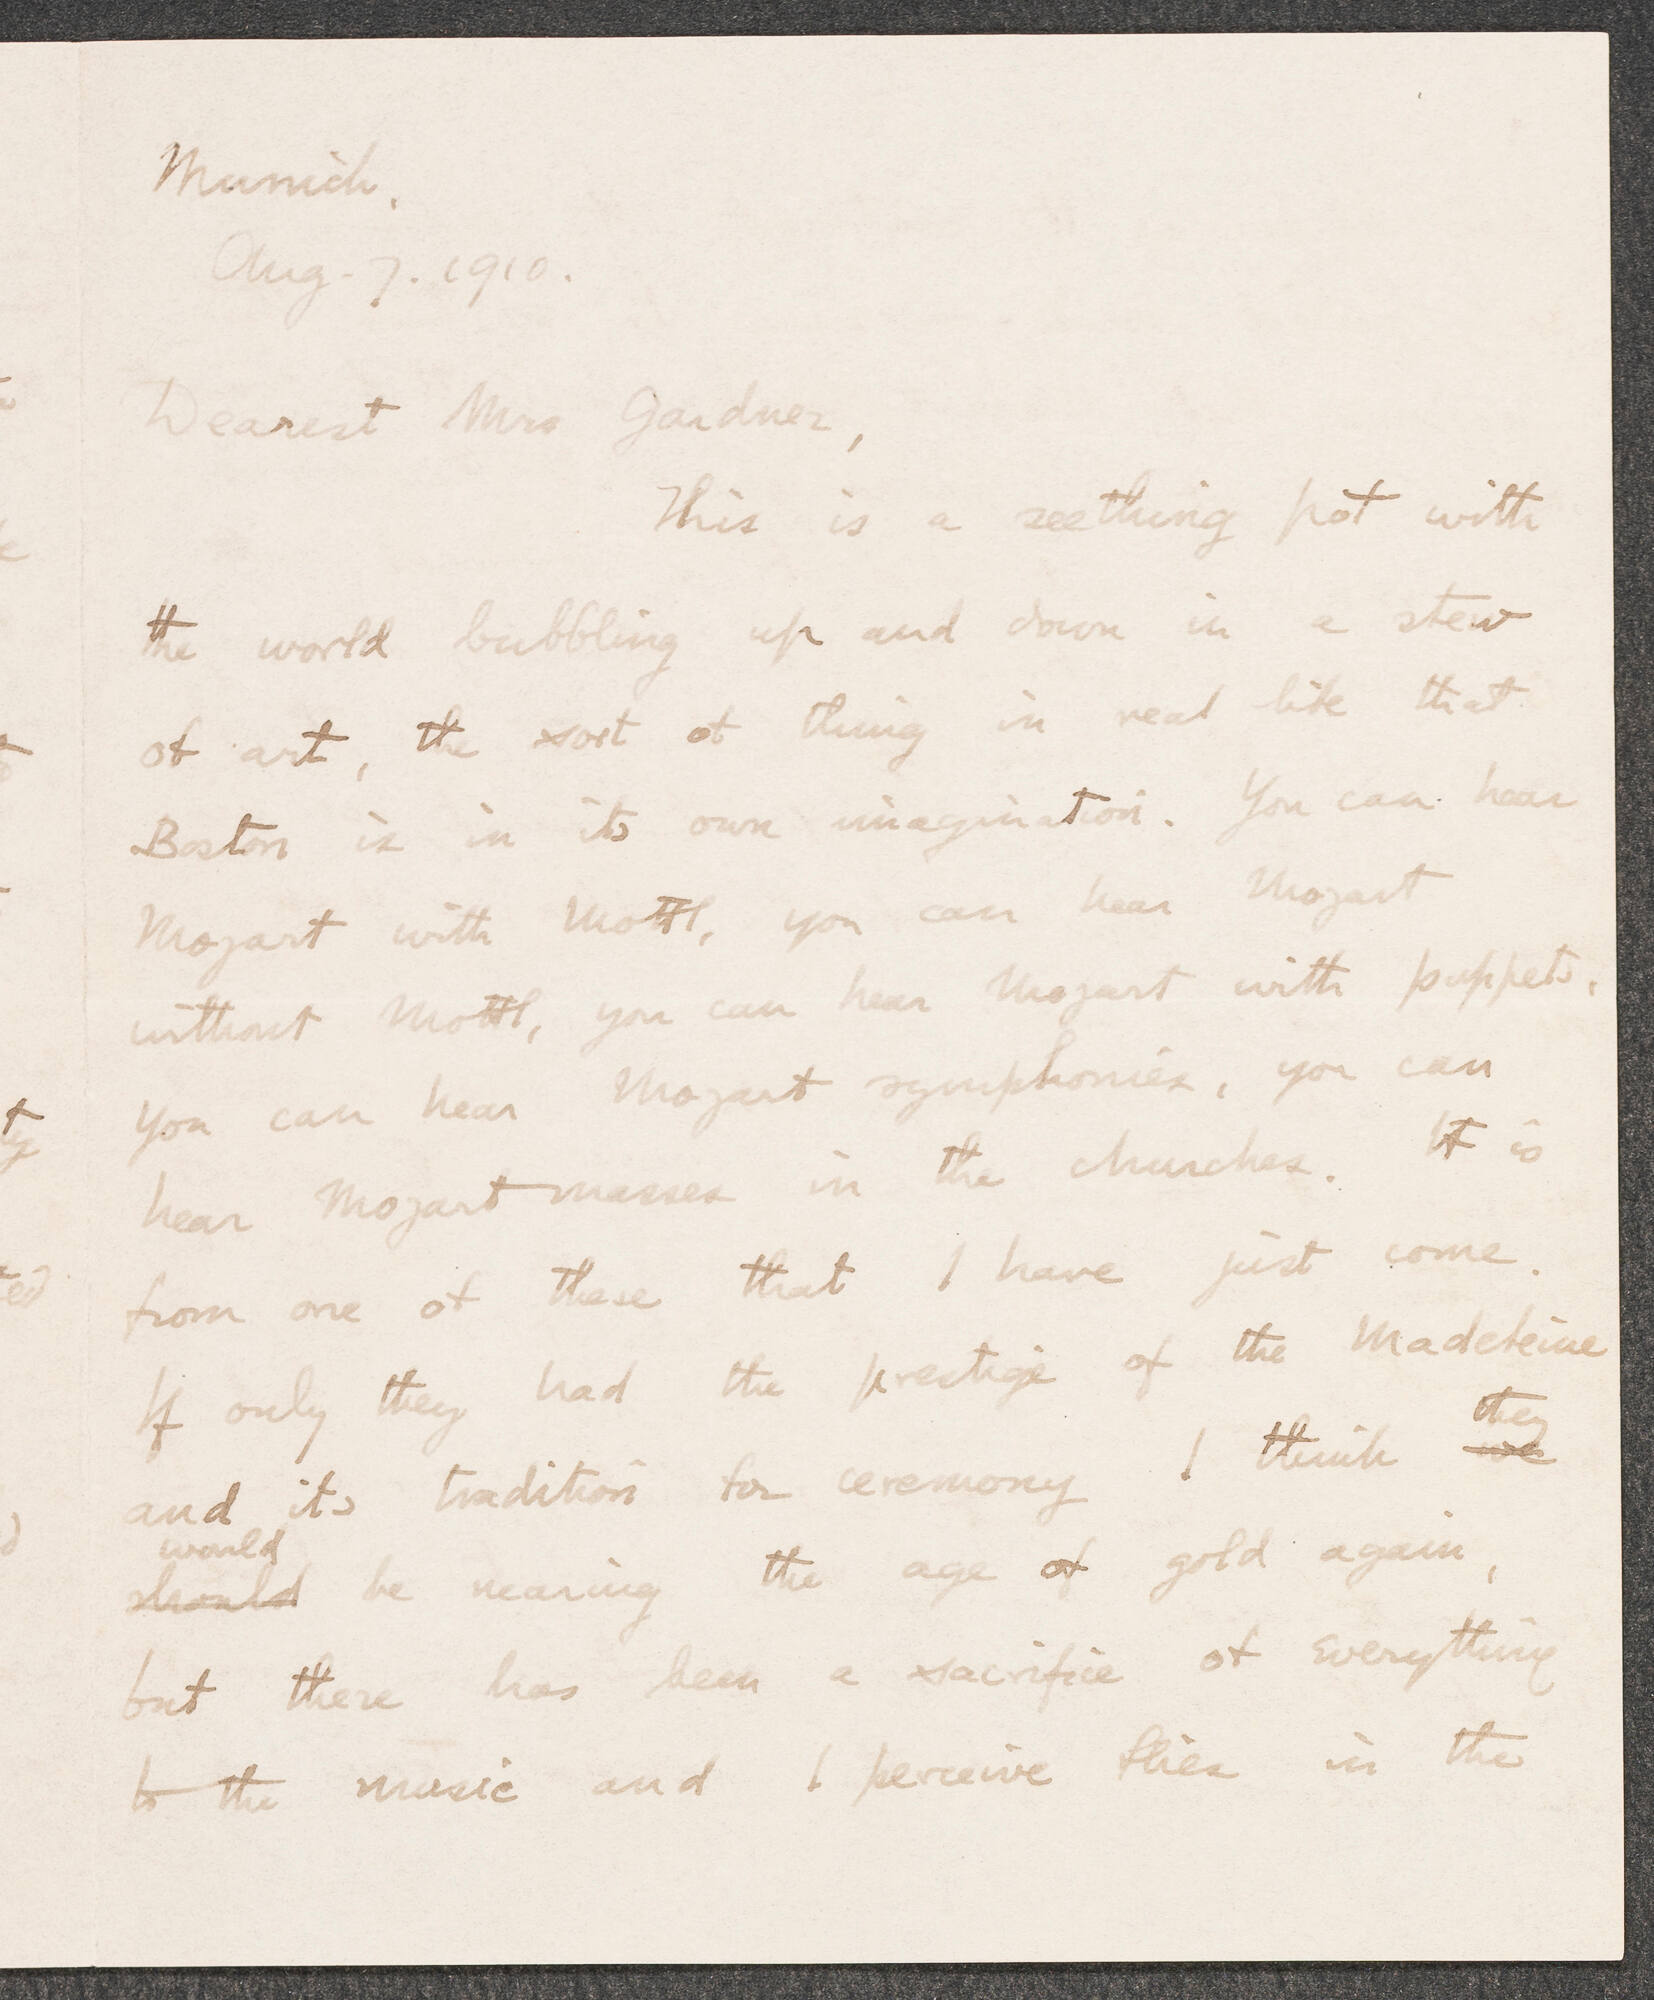 Munich.
Aug. 7. 1910.
Dearest Mrs Gardner,
This is a seething pot with
the world bubbling up and down in a stew
of art, the sort of thing in real life that
Boston is in its own imagination. You can hear
Mozart with Mottl, you can hear Mozart
without Mottl, you can hear Mozart with puppets.
You can hear Mozart symphonies, you can
hear Mozart masses in the churches. It is
from one of these that I have just come.
If only they had the prestige of the Madeleine
they
and its tradition for ceremony I think we
would
should be nearing the age of gold again,
but there has been a sacrifice of everything
to the music and I perceive flies in the